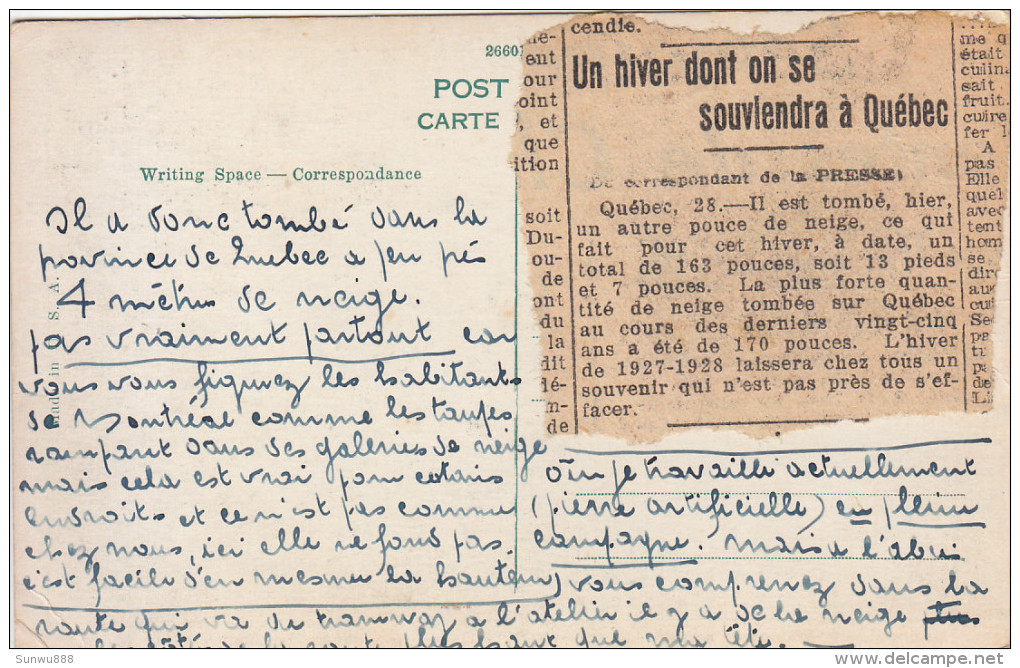 26601
POST
CARTE
Writing Space — Correspondance
made in U. S. A.
Il a donc tombé dans la
province de Quebec a peu pès
4 mètres de neige.
pas vraiment partout car
vous vous figurez les habitants
de Montréal comme les taupes
rampant dans des galeries de neige
mais cela est vrai pour certains
endroits et ce n'est pas comme
chez nous, ici elle ne fond pas.
c'est facile d'en mesurer la hauteur,
cendie.
Un hiver dont on se
souviendra à Québec
Du correspondant de la PRESSE)
Québec, 28.—Il est tombé, hier,
un autre pouce de neige, ce qui
fait pour cet hiver, à date, un
total de 163 pouces, soit 13 pieds
et 7 pouces. La plus forte quan-
tité de neige tombée sur Québec
au cours des derniers vingt-cinq
ans a été de 170 pouces. L'hiver
de 1927-1928 laissera chez tous un
souvenir qui n'est pas près de s'ef-
facer.
ne-
ent
our
oint
, et
que
ition
soit
Du-
ou-
de
ont
du
la
dit
lé-
m-
de
me q
était
culina
sait
fruit.
cuire
fer l
A
pas
Elle
quel
avec
tent
hom
se
dire
aux
cui
Sec
pa
de
où je travaille actuellement
(pierre artificielle) en pleine
campagne. Mais a l'abri
vous comprenez dans la
route qui va du tramway a l'atelier il y a de la neige
de la route plus haut que ma tête.
Sunwu888